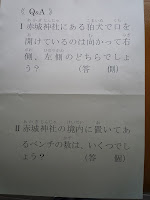 《 Q&A 》
Ⅰ 赤城神社にある狛犬で口を
開けているのは向かって右
側、左側のどちらでしょ
う? （答 側）
Ⅱ 赤城神社の境内に置いてあ
るベンチの数は、いくつでし
ょう? （答 個）